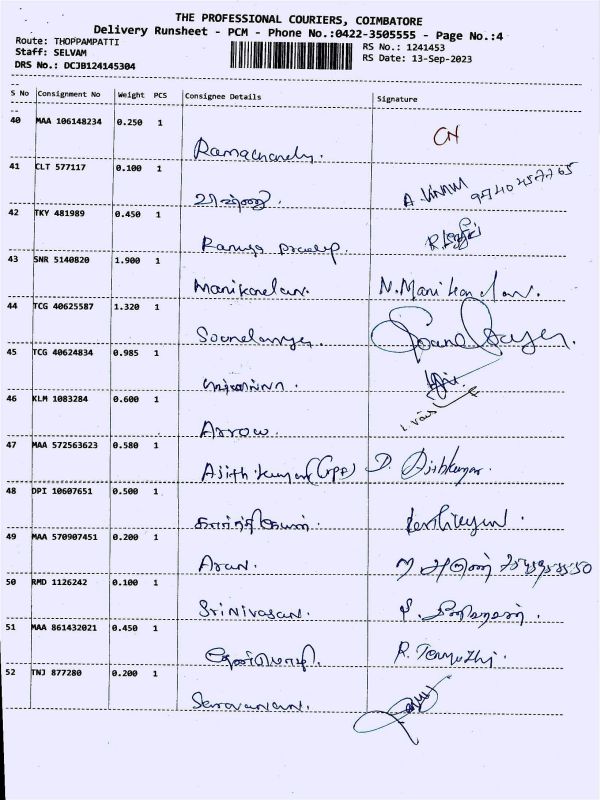 THE PROFESSIONAL COURIERS, COIMBATORE
Delivery Runsheet - PCM - Phone No.:0422-3505555 - Page No.:4
Route: THOPPAMPATTI RS No.: 1241453
Staff: SELVAM RS Date: 13-Sep-2023
DRS No.: DCJB124145304
S No Consignment No Weight PCS Consignee Details Signature
40 MAA 106148234 0.250 1
CN
41 CLT 577117 0.100 1
42 TKY 481989 0.450 1
43 SNR 5140820 1.900 1
Manikandan. N. Manikandan.
44 TCG 40625587 1.320 1
45 TCG 40624834 0.985 1
46 KLM 1083284 0.600 1
Arrow.
47 MAA 572563623 0.580 1
Ajith kumar D. Ajithkumar.
48 DPI 10607651 0.500 1
கார்த்திகேயன்.
49 MAA 570907451 0.200 1
Arun. அருண்
50 RMD 1126242 0.100 1
Srinivasan.
51 MAA 861432021 0.450 1
தேன்மொழி.
52 TNJ 877280 0.200 1
Saravanan.